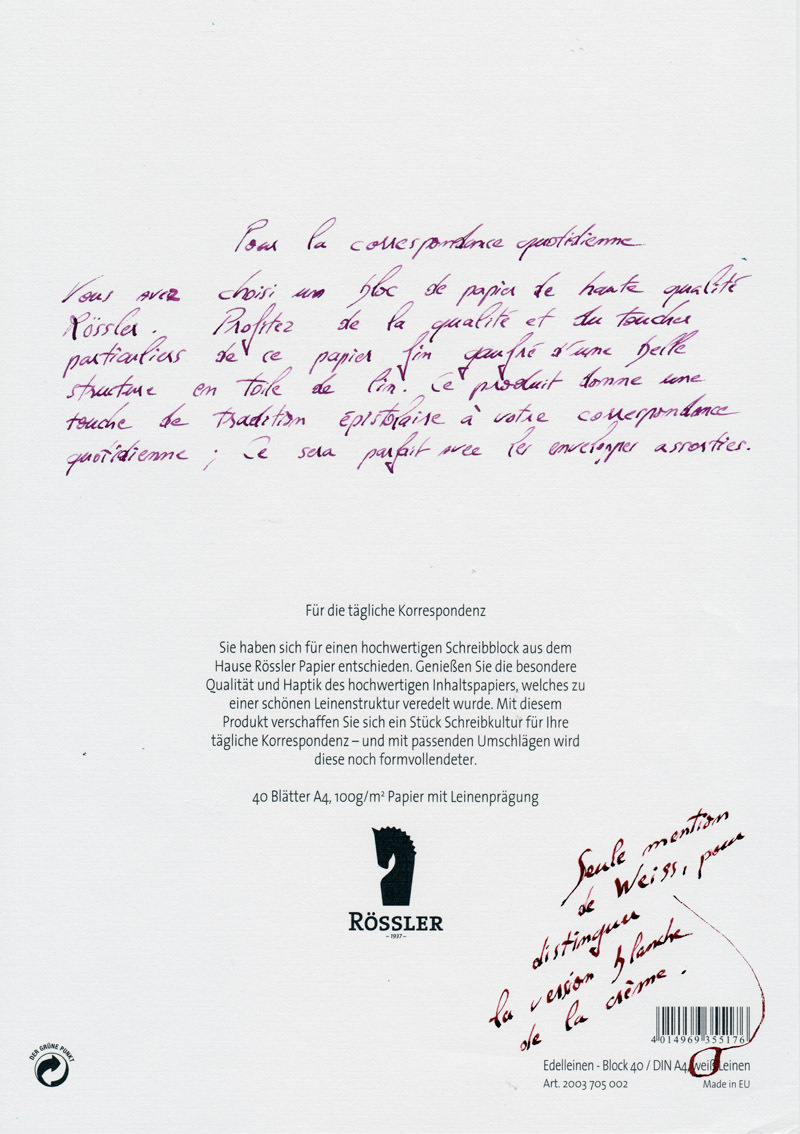 Pour la correspondance quotidienne
Vous avez choisi un bloc de papier de haute qualité
Rössler. Profitez de la qualité et du toucher
particuliers de ce papier fin gaufré d'une belle
structure en toile de lin. Ce produit donne une
touche de tradition épistolaire à votre correspondance
quotidienne ; Ce sera parfait avec les enveloppes assorties.
Für die tägliche Korrespondenz
Sie haben sich für einen hochwertigen Schreibblock aus dem
Hause Rössler Papier entschieden. Genießen Sie die besondere
Qualität und Haptik des hochwertigen Inhaltspapiers, welches zu
einer schönen Leinenstruktur veredelt wurde. Mit diesem
Produkt verschaffen Sie sich ein Stück Schreibkultur für Ihre
tägliche Korrespondenz – und mit passenden Umschlägen wird
diese noch formvollendeter.
40 Blätter A4, 100g/m² Papier mit Leinenprägung
RÖSSLER
– 1937 –
Seule mention
de Weiss, pour
distinguer
la version blanche
de la crème.
4 014969 355176
DER GRÜNE PUNKT
Edelleinen - Block 40 / DIN A4, weiß Leinen
Art. 2003 705 002
Made in EU